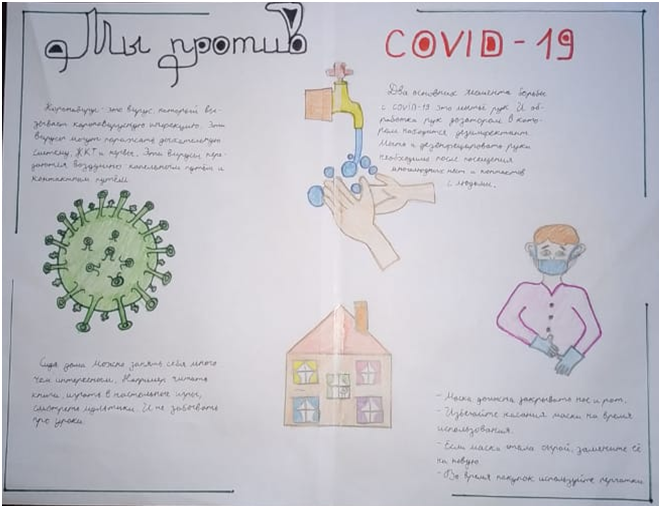 Мы против COVID-19
Коронавирус - это вирус, который вы-
зывает коронавирусную инфекцию. Эти
вирусы могут поражать дыхательную
систему, ЖКТ и нервы. Эти вирусы пере-
даются воздушно-капельным путём и
контактным путём.
Два основных момента борьбы
с COVID-19 это мытьё рук И об-
работка рук дозатором, в кото-
ром находится дезинфектант.
Мыть и дезинфицировать руки
необходимо после посещения
многолюдных мест и контактов
с людьми.
Сидя дома можно занять себя много
чем интересным. Например читать
книги, играть в настольные игры,
смотреть мультики. И не забывать
про уроки.
- Маска должна закрывать нос и рот.
- Избегайте касания маски во время
использования.
- Если маска стала сырой, замените её
на новую
- Во время покупок используйте перчатки